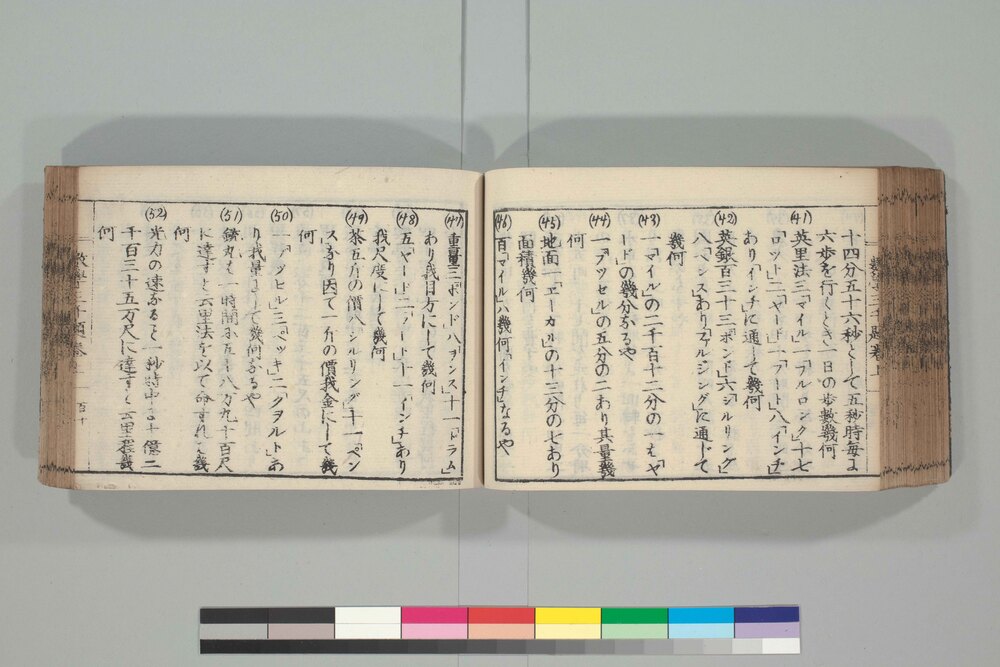 十四分五十六秒として五秒時毎に
六歩を行くとき一日の歩数幾何
(41)
英里法三「マイル」一「フルロング」十七
「ロット」二「ヤード」一「フート」八「インチ」
あり「インチ」に通して幾何
(42)
英銀百三十三「ポンド」六「シルリング」
八「ペンス」あり「フアルジング」に通して
幾何
(43)
一「マイル」の二千百十二分の一も「ヤ
ード」の幾分なるや
(44)
一「ブツセル」の五分の二あり其量幾
何
(45)
地面一「エーカル」の十三分の七あり
面積幾何
(46)
百「マイル」ハ幾何「インチ」なるや
(47)
重量三「ポンド」八「ヲンス」十一「ドラム」
あり我目方にして幾何
(48)
五「ヤード」二「フート」十一「インチ」あり
我尺度にして幾何
(49)
茶五斤の價八「シルリング」十一「ペン
ス」なり因て一斤の價我金にして幾
何
(50)
一「ブツヒル」三「ペッキ」二「クヲルト」あ
り我量にして幾何なるや
(51)
銕丸も一時間に五百八万九千百尺
に達すと云里法を以て命すれハ幾
何
(52)
光力の速なること一秒時中に十億二
千百三十五万尺に達すと云里程幾
何